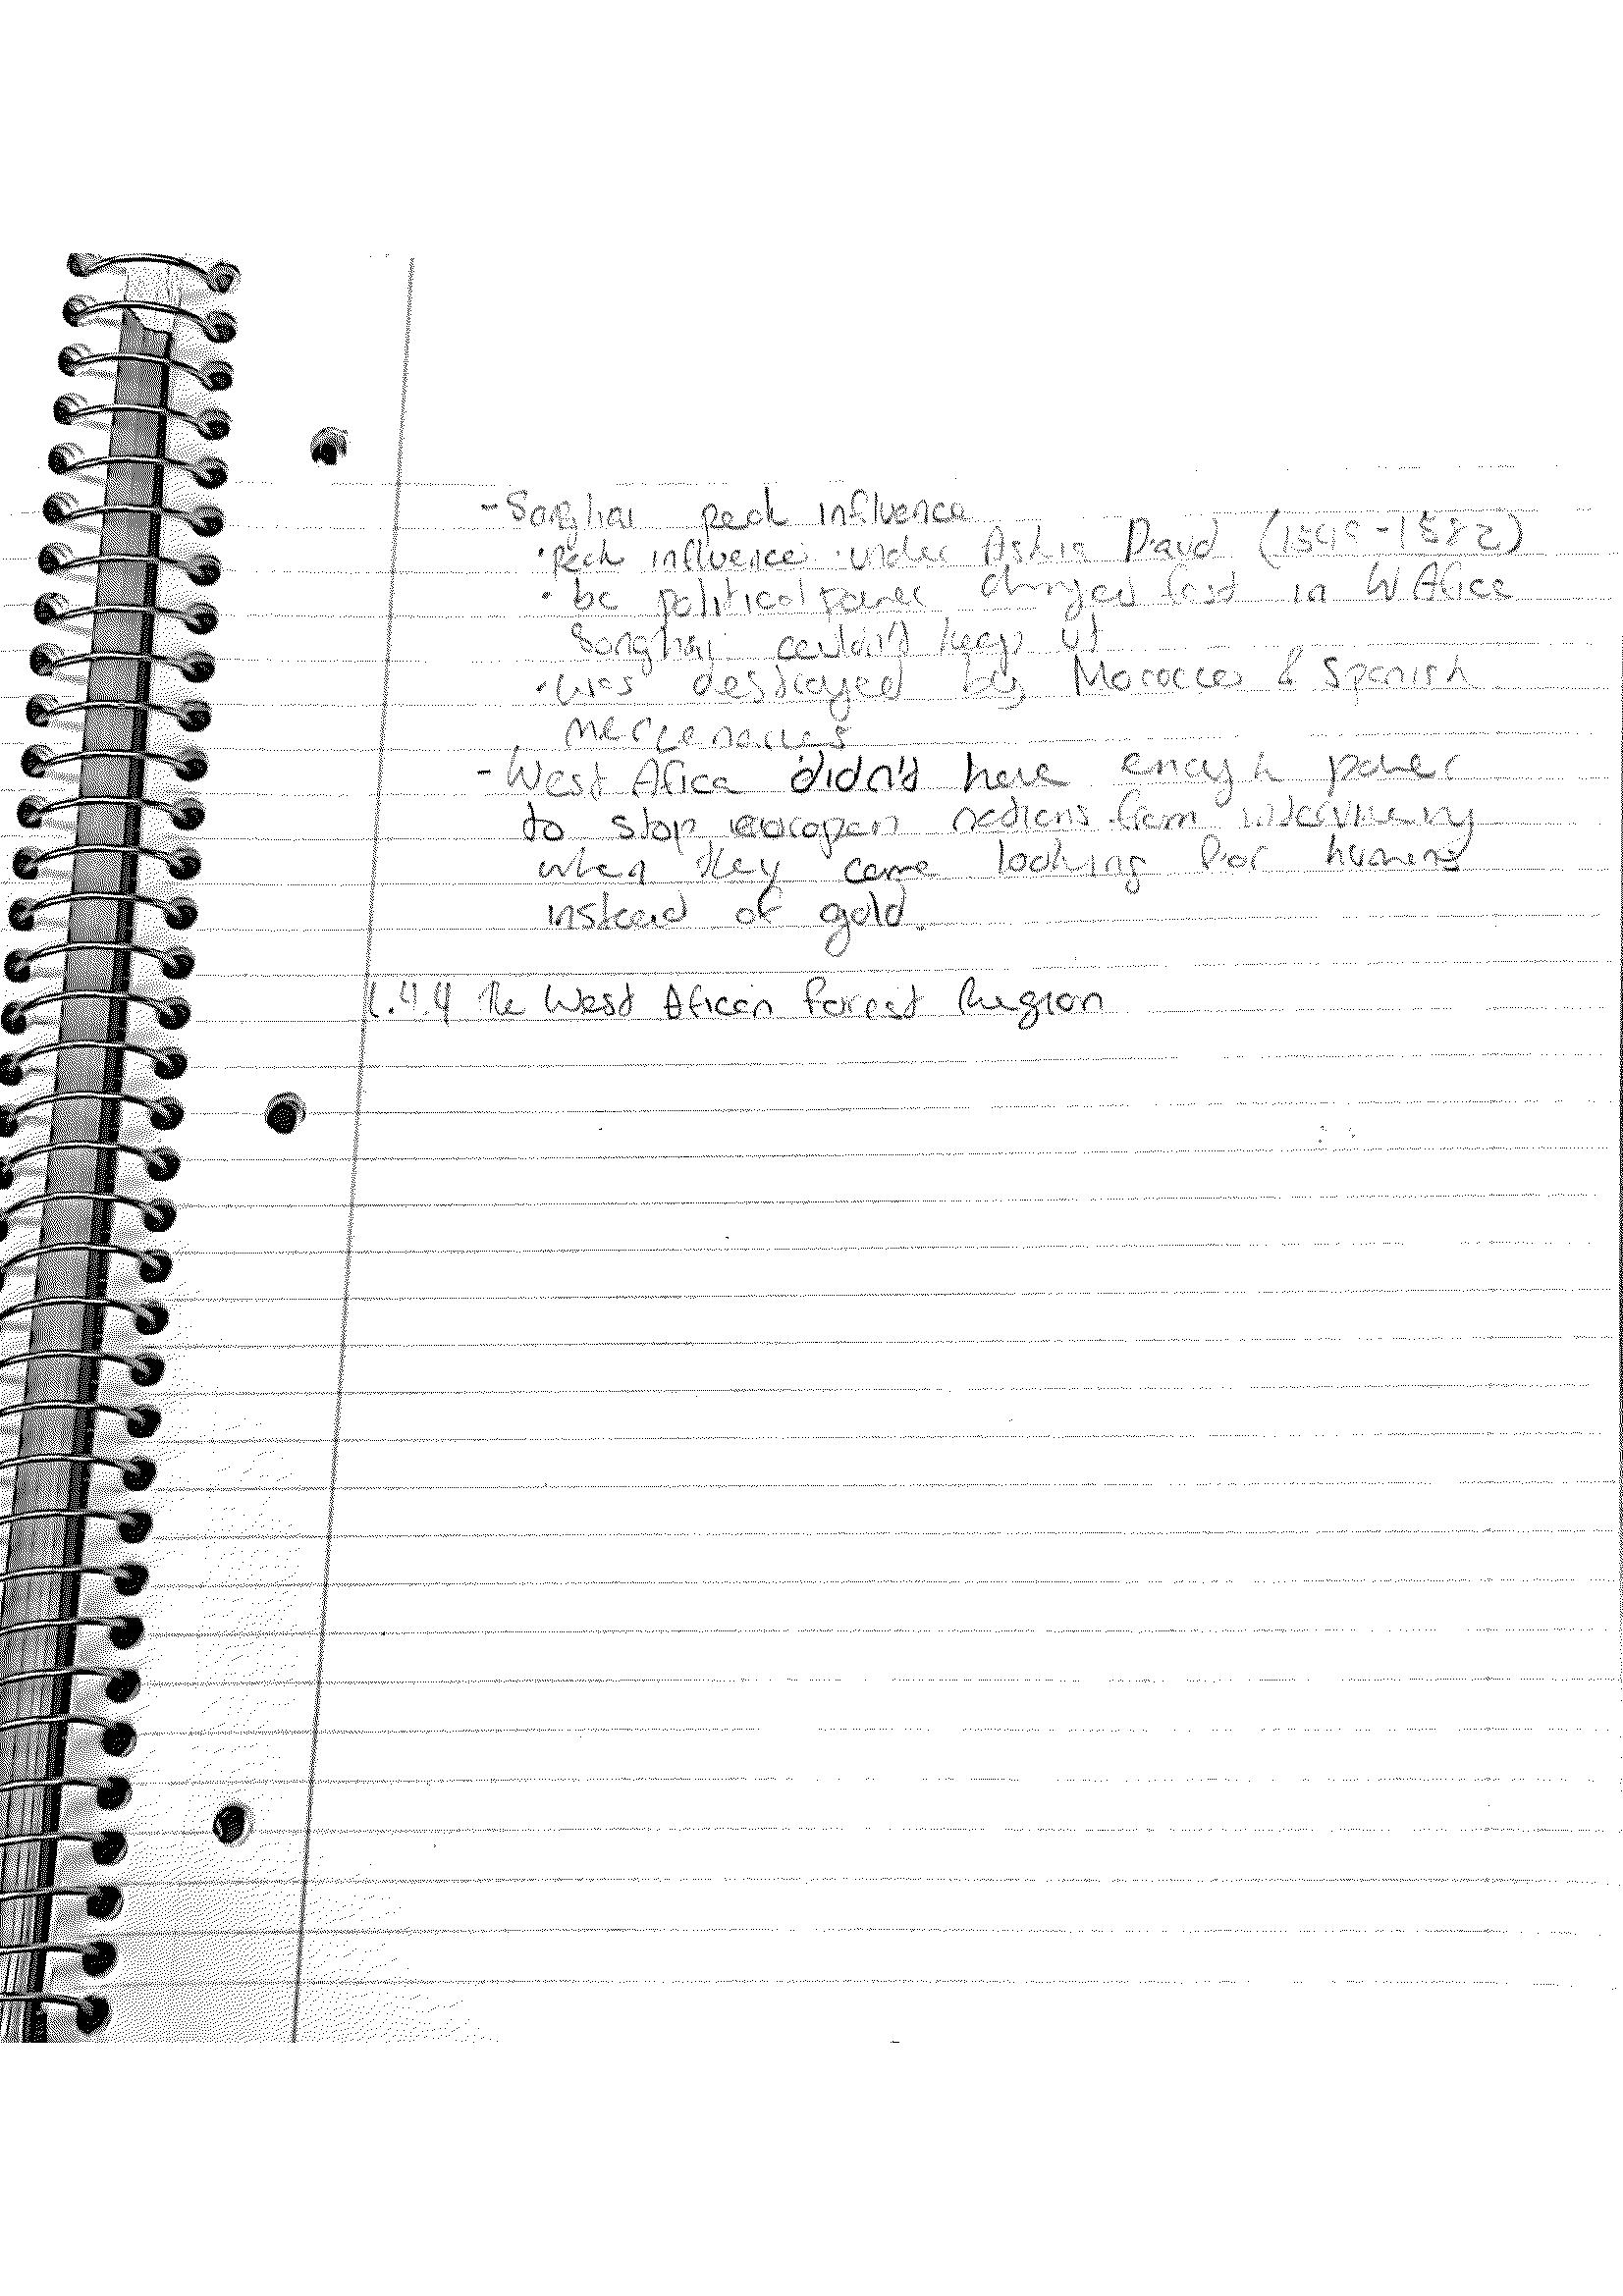 - Songhai peak influence
• Peak influence under Askia Daud (1549-1582)
• bc political power changed fast in W Africa
Songhai couldn't keep up
• was destroyed by Morocco & Spanish
mercenaries
- West Africa didn't have enough power
to stop european nations from interviening
when they came looking for humans
instead of gold.
1.4.4 The West African Forest Region